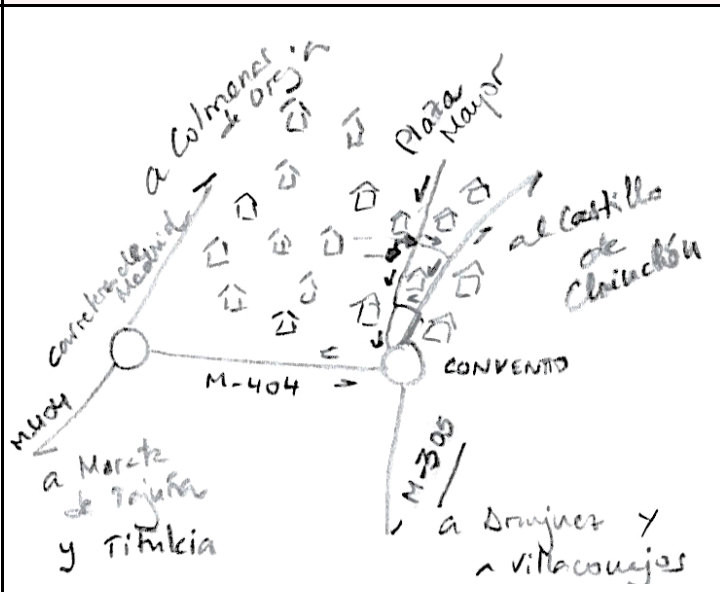 a Colmenar
de Oreja
Plaza
Mayor
al Castillo
de
Chinchón
carretera de
Madrid
M-404
CONVENTO
M-404
a Morata
de Tajuña
y Titulcia
M-305
a Aranjuez y
a Villaconejos